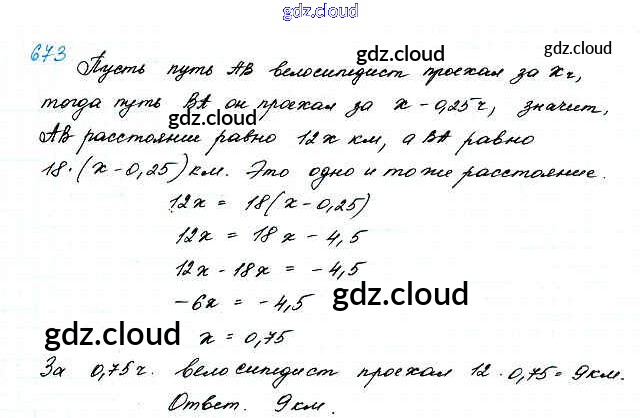 gdz.cloud
673
gdz.cloud
gdz.cloud
Пусть путь АВ велосипедист проехал за x ч,
тогда путь ВА он проехал за x - 0,25 ч, значит,
gdz.cloud
АВ расстояние равно 12x км, а ВА равно
18·(x-0,25) км. Это одно и то же расстояние.
gdz.cloud
12x = 18(x-0,25)
12x = 18x - 4,5
12x - 18x = -4,5
-6x = -4,5
gdz.cloud
gdz.cloud
x = 0,75
За 0,75 ч. велосипедист проехал 12·0,75 = 9 км.
Ответ. 9 км.